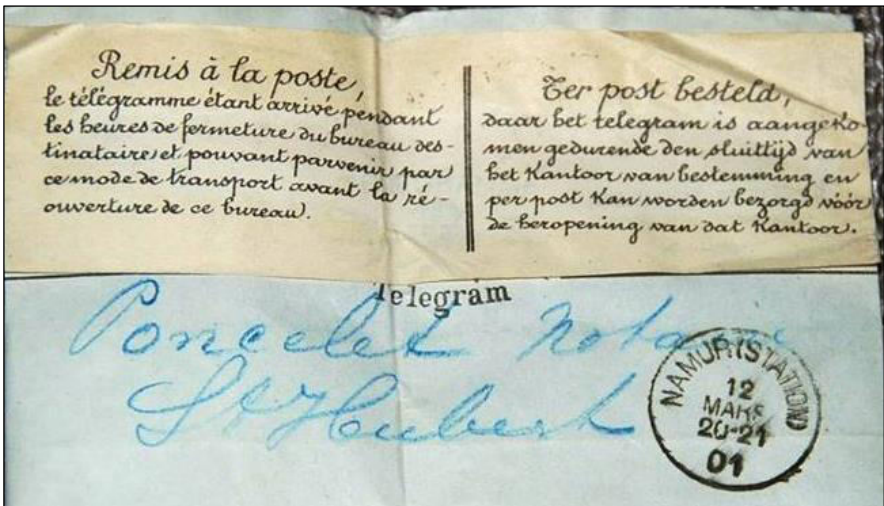 Remis à la poste,
le télégramme étant arrivé pendant
les heures de fermeture du bureau des-
tinataire et pouvant parvenir par
ce mode de transport avant la ré-
ouverture de ce bureau.
Ter post besteld,
daar het telegram is aangeko-
men gedurende den sluittijd van
het Kantoor van bestemming en
per post Kan worden bezorgd vóór
de heropening van dat Kantoor.
Telegram
Poncelet Notaire
St Hubert
NAMUR (STATION)
12
MARS
20-21
01